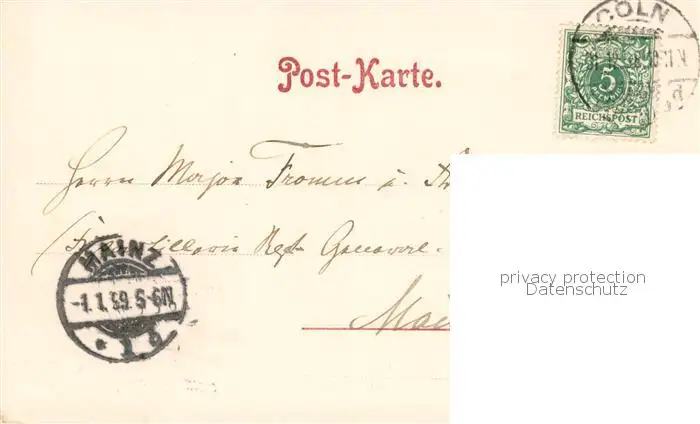 CÖLN
5
REICHSPOST
Post-Karte.
Herrn Major Fromm u.
Artillerie Regt General-
Mai
MAINZ
-1.1.99. 5-6N.
* 1 *
privacy protection
Datenschutz